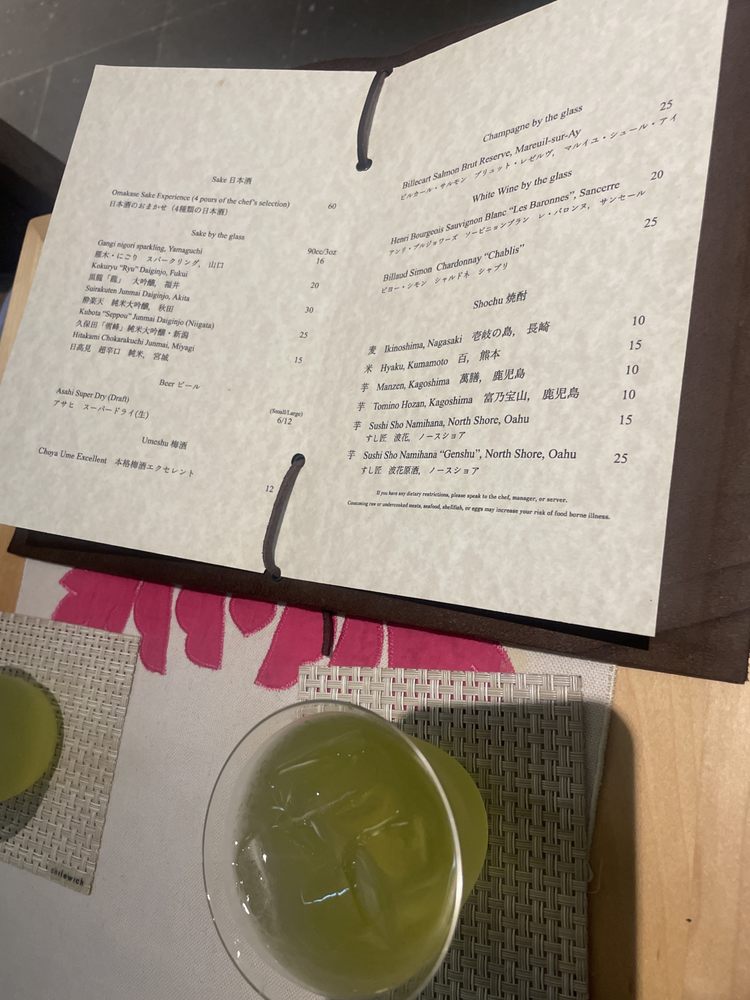 Sake 日本酒
Omakase Sake Experience (4 pours of the chef's selection) 60
日本酒のおまかせ（4種類の日本酒）
Sake by the glass
90cc/3oz
Gangi nigori sparkling, Yamaguchi 16
雁木・にごり スパークリング, 山口
Kokuryu "Ryu" Daiginjo, Fukui 20
黒龍「龍」 大吟醸, 福井
Suirakuten Junmai Daiginjo, Akita 30
酔楽天 純米大吟醸, 秋田
Kubota "Seppou" Junmai Daiginjo (Niigata) 25
久保田「雪峰」純米大吟醸・新潟
Hitakami Chokarakuchi Junmai, Miyagi 15
日高見 超辛口 純米, 宮城
Beer ビール
(Small/Large)
Asahi Super Dry (Draft) 6/12
アサヒ スーパードライ(生)
Umeshu 梅酒
Choya Ume Excellent 本格梅酒エクセレント 12
Champagne by the glass
Billecart Salmon Brut Reserve, Mareuil-sur-Ay 25
ビルカール・サルモン ブリュット・レゼルヴ, マルイユ・シュール・アイ
White Wine by the glass
Henri Bourgeois Sauvignon Blanc "Les Baronnes", Sancerre 20
アンリ・ブルジョワーズ ソービニョンブラン レ・バロンヌ, サンセール
Billaud Simon Chardonnay "Chablis" 25
ビヨー・シモン シャルドネ シャブリ
Shochu 焼酎
麦 Ikinoshima, Nagasaki 壱岐の島, 長崎 10
米 Hyaku, Kumamoto 百, 熊本 15
芋 Manzen, Kagoshima 萬膳, 鹿児島 10
芋 Tomino Hozan, Kagoshima 富乃宝山, 鹿児島 10
芋 Sushi Sho Namihana, North Shore, Oahu 15
すし匠 波花, ノースショア
芋 Sushi Sho Namihana "Genshu", North Shore, Oahu 25
すし匠 波花原酒, ノースショア
If you have any dietary restrictions, please speak to the chef, manager, or server.
Consuming raw or undercooked meats, seafood, shellfish, or eggs may increase your risk of food borne illness.
chilewich